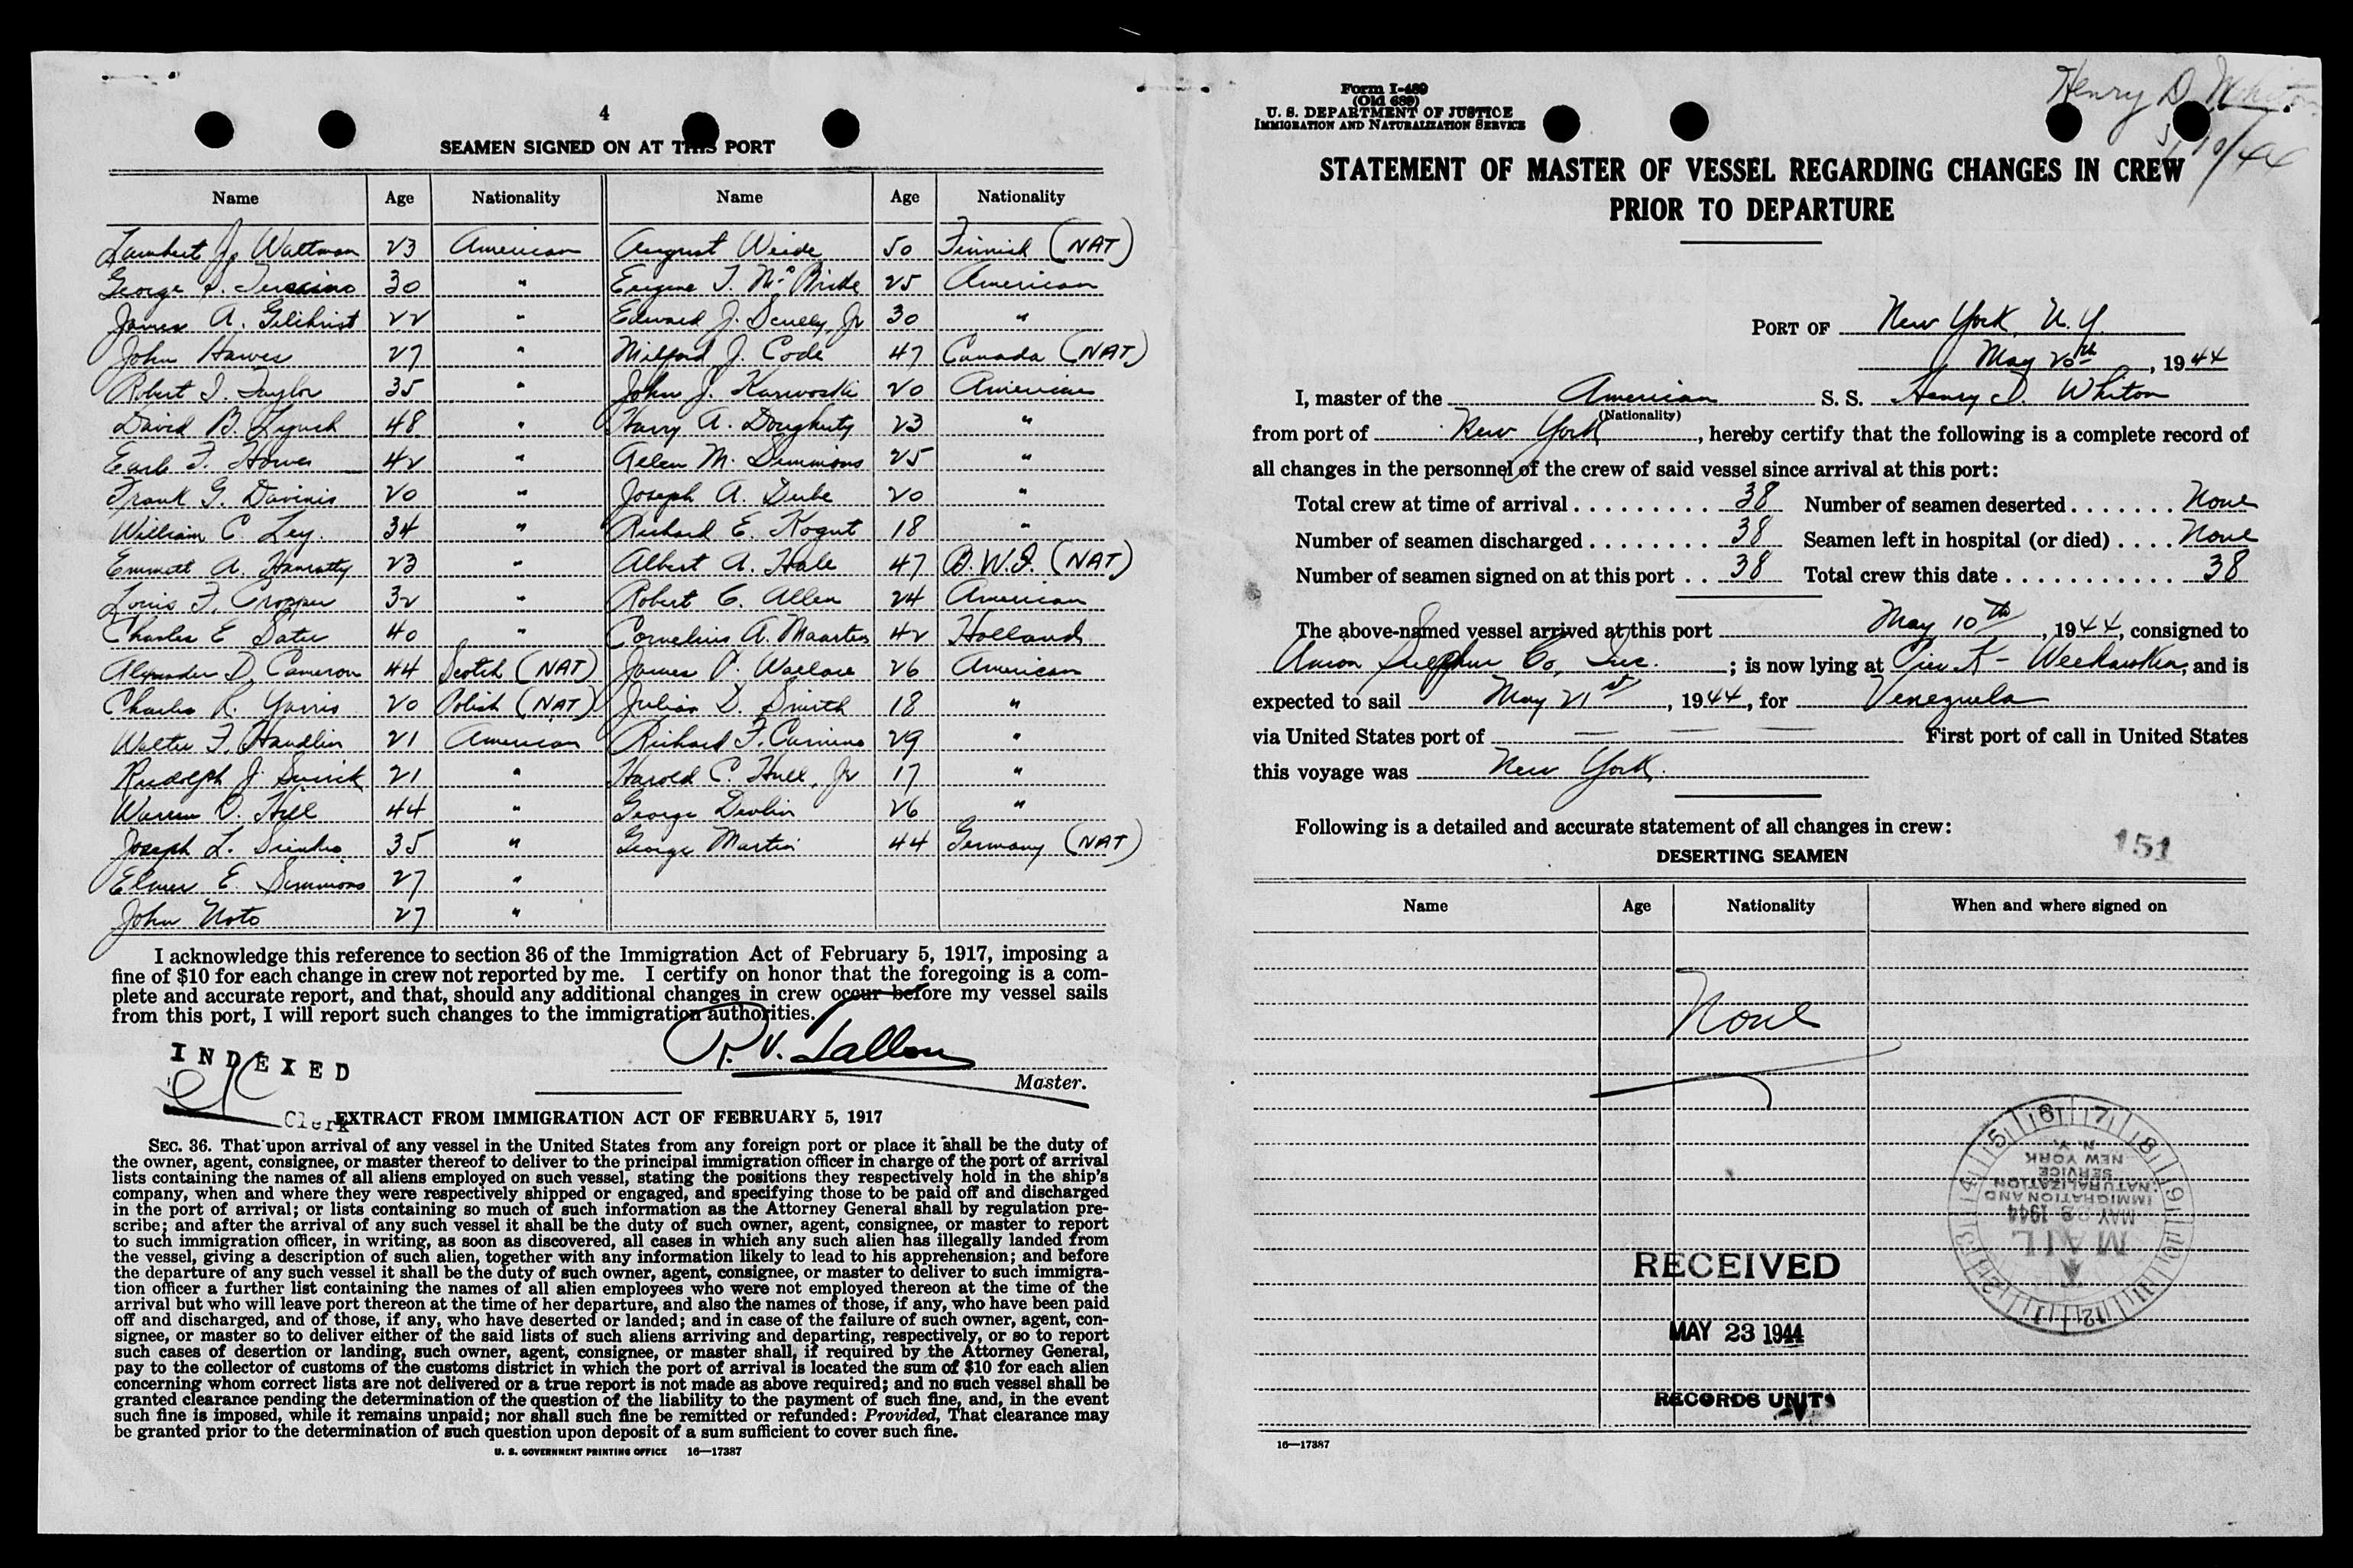 4
SEAMEN SIGNED ON AT THIS PORT
Name Age Nationality Name Age Nationality
Lambert J. Waltman 23 American August Weide 50 Finnish (NAT)
George 30 " Eugene T. McBride 25 American
James A. Gilchrist 22 " Edward J. Scully, Jr 30 "
John Hawes 27 " Milford J. Code 47 Canada (NAT)
Robert I. Taylor 35 " John J. Karwoski 20 American
David B. Lynch 48 " Harry A. Dougherty 23 "
Earle F. Howes 42 " Allen M. Simmons 25 "
Frank G. Davinis 20 " Joseph A. Dube 20 "
William C. Ley. 34 " Richard E. Kogut 18 "
Emmett A. Hanratty 23 " Albert A. Hale 47 B.W.I. (NAT)
Louis F. Cropper 32 " Robert C. Allen 24 American
Charles E. 40 " Cornelius A. Maartens 42 Holland
Alexander D. Cameron 44 Scotch (NAT) James V. Wallace 26 American
Charles R. Yarris 20 Polish (NAT) Julian D. Smith 18 "
Walter F. Handlin 21 American Richard F. 29 "
Rudolph J. 21 " Harold C. Hull, Jr 17 "
Warren O. Hill 44 " George Devlin 26 "
Joseph L. 35 " George Martin 44 Germany (NAT)
Elmer E. Simmons 27 "
John Noto 27 "
I acknowledge this reference to section 36 of the Immigration Act of February 5, 1917, imposing a
fine of $10 for each change in crew not reported by me. I certify on honor that the foregoing is a com-
plete and accurate report, and that, should any additional changes in crew occur before my vessel sails
from this port, I will report such changes to the immigration authorities.
P. V. Tallon
Master.
INDEXED
Clerk
EXTRACT FROM IMMIGRATION ACT OF FEBRUARY 5, 1917
SEC. 36. That upon arrival of any vessel in the United States from any foreign port or place it shall be the duty of
the owner, agent, consignee, or master thereof to deliver to the principal immigration officer in charge of the port of arrival
lists containing the names of all aliens employed on such vessel, stating the positions they respectively hold in the ship's
company, when and where they were respectively shipped or engaged, and specifying those to be paid off and discharged
in the port of arrival; or lists containing so much of such information as the Attorney General shall by regulation pre-
scribe; and after the arrival of any such vessel it shall be the duty of such owner, agent, consignee, or master to report
to such immigration officer, in writing, as soon as discovered, all cases in which any such alien has illegally landed from
the vessel, giving a description of such alien, together with any information likely to lead to his apprehension; and before
the departure of any such vessel it shall be the duty of such owner, agent, consignee, or master to deliver to such immigra-
tion officer a further list containing the names of all alien employees who were not employed thereon at the time of the
arrival but who will leave port thereon at the time of her departure, and also the names of those, if any, who have been paid
off and discharged, and of those, if any, who have deserted or landed; and in case of the failure of such owner, agent, con-
signee, or master so to deliver either of the said lists of such aliens arriving and departing, respectively, or so to report
such cases of desertion or landing, such owner, agent, consignee, or master shall, if required by the Attorney General,
pay to the collector of customs of the customs district in which the port of arrival is located the sum of $10 for each alien
concerning whom correct lists are not delivered or a true report is not made as above required; and no such vessel shall be
granted clearance pending the determination of the question of the liability to the payment of such fine, and, in the event
such fine is imposed, while it remains unpaid; nor shall such fine be remitted or refunded: Provided, That clearance may
be granted prior to the determination of such question upon deposit of a sum sufficient to cover such fine.
U. S. GOVERNMENT PRINTING OFFICE 16—17387
Henry D. Whiton
5/10/44
Form I-489
(Old 689)
U. S. DEPARTMENT OF JUSTICE
IMMIGRATION AND NATURALIZATION SERVICE
STATEMENT OF MASTER OF VESSEL REGARDING CHANGES IN CREW
PRIOR TO DEPARTURE
PORT OF New York, N.Y.
May 20th, 1944
I, master of the American S. S. Henry D. Whiton
(Nationality)
from port of New York, hereby certify that the following is a complete record of
all changes in the personnel of the crew of said vessel since arrival at this port:
Total crew at time of arrival 38 Number of seamen deserted None
Number of seamen discharged 38 Seamen left in hospital (or died) None
Number of seamen signed on at this port 38 Total crew this date 38
The above-named vessel arrived at this port May 10th, 1944, consigned to
Union Sulphur Co., Inc.; is now lying at Pier K - Weehawken, and is
expected to sail May 21st, 1944, for Venezuela
via United States port of — — — First port of call in United States
this voyage was New York.
Following is a detailed and accurate statement of all changes in crew:
151
DESERTING SEAMEN
Name Age Nationality When and where signed on
None
IMMIGRATION AND
NATURALIZATION
SERVICE
NEW YORK
N. Y.
MAY 22 1944
MAIL
RECEIVED
MAY 23 1944
RECORDS UNIT
16—17387